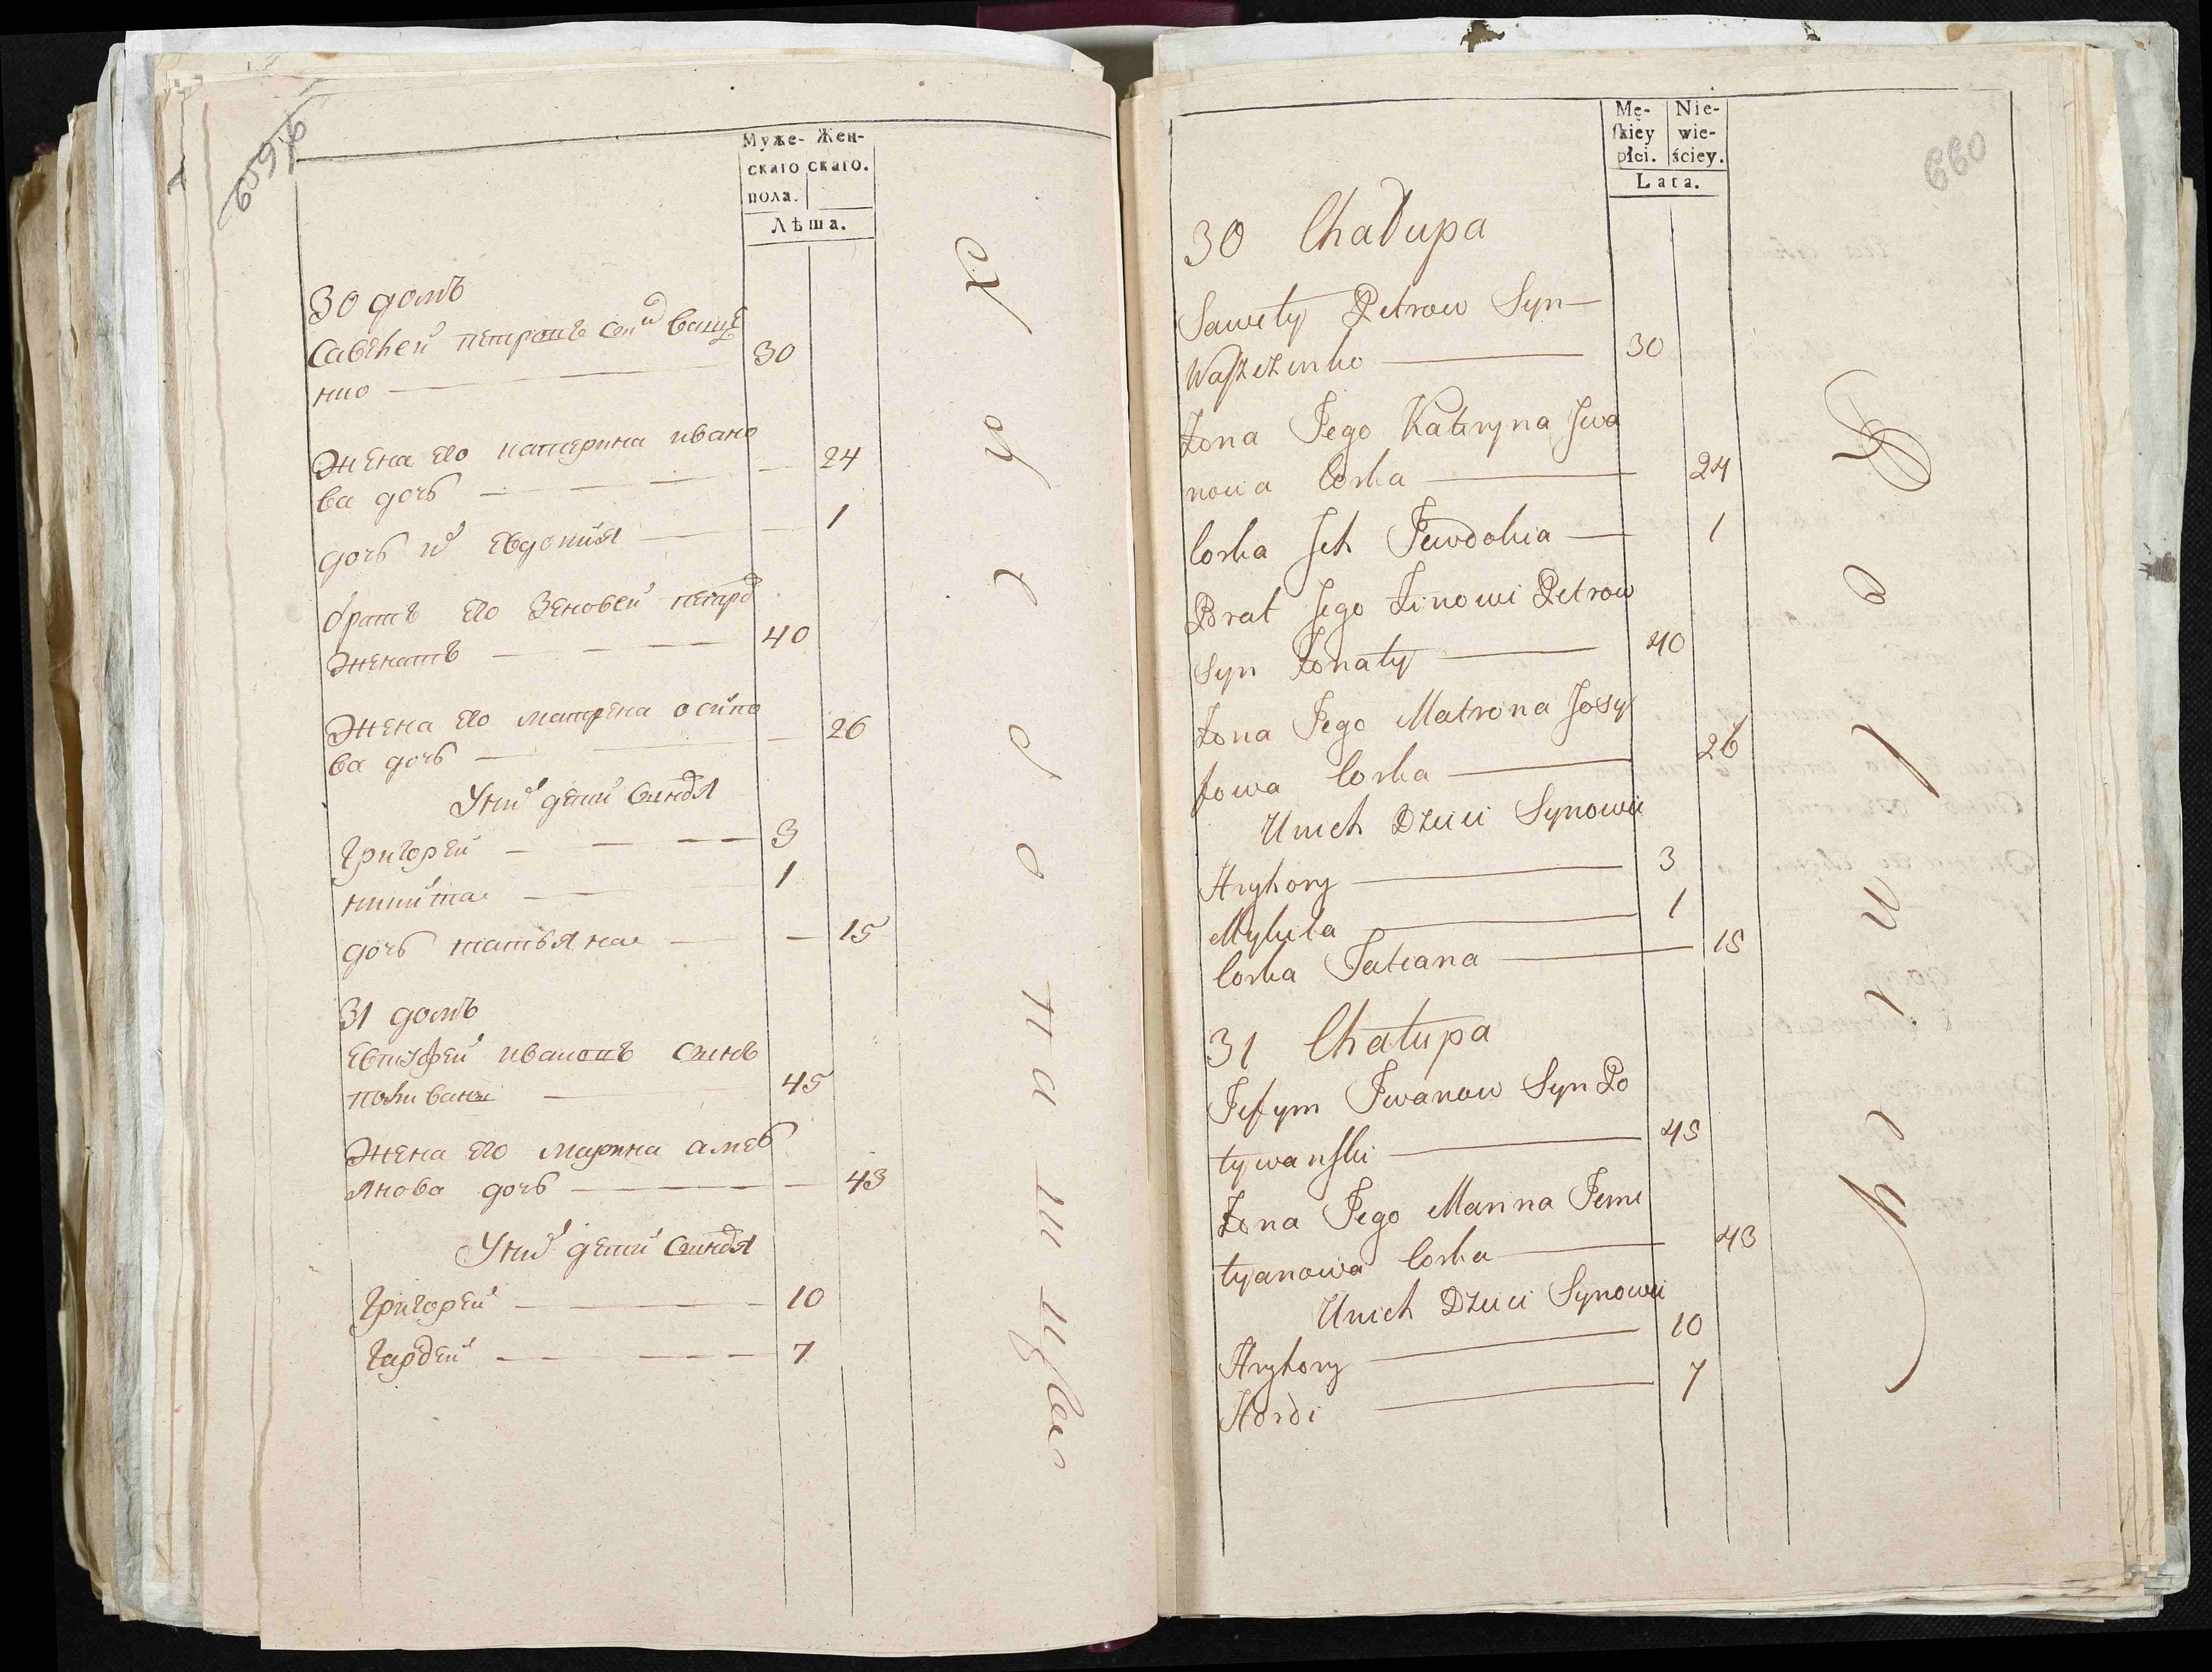 659 об
Муже- Жен-
скаго скаго.
пола.
Лѣта.
30 домъ
Савелей петровъ сын ваще
нко 30
Жена его катерина ивано
ва дочь 24
дочь их евдокия 1
братъ его Зеновей петро
Женатъ 40
Жена его матрена осипо
ва дочь 26
У них детей сыновя
Григорей 3
никита 1
дочь татьяна 15
31 домъ
Евтифей ивановъ сынъ
45
Жена его марина амеь
янова дочь 43
У них детей сыновя
Григорей 10
Гардей 7
660
Mę- Nie-
skiey wie-
płci. ściey.
Lata.
30 Chałupa
Sawety Petrow Syn
Waszczenko 30
Żona Jego Kateryna Jwa
nowa Corka 24
Corka Jch Jewdokia 1
Brat Jego Zinowi Petrow
Syn Żonaty 40
Żona Jego Matrona Josy
fowa Corka 26
Unich Dzieci Synowie
Hryhory 3
Mykita 1
Corka Tatiana 15
31 Chałupa
Jefym Jwanow Syn Po
tywanski 45
Żona Jego Marina Jeme
tyanowa Corka 43
Unich Dzieci Synowie
Hryhory 10
Hordi 7